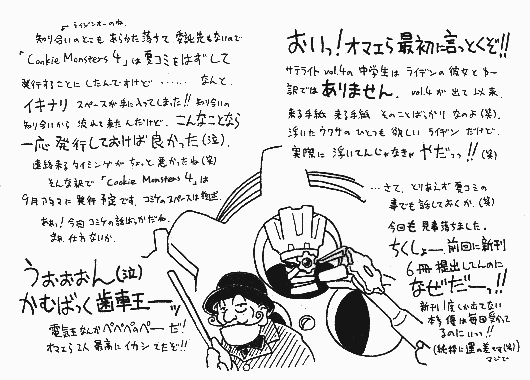 おいっ!オマエら最初に言っとくぞ!!
サテライト vol.4の中学生は ライデンの彼女とゆー
訳では ありません。vol.4が出て以来、
来る手紙 来る手紙 そのことばかり なのよ(笑)。
浮いたウワサのひとつも欲しい ライデン だけど、
実際に 浮いてんじゃなきゃ やだっっ!!(笑)
…さて、とりあえず夏コミの
事でも話しておくか。(笑)
今回も 見事落ちました。
ちくしょー、前回に新刊
6冊提出してんのに
なぜだーっ!!
新刊1度しか出てない
本多優は毎回受かって
るのにぃっ!!
(純粋に運の差です(笑))
マジで
ライジンオーのね、
知り合いのとこも あらかた落ちて 委託先もないので
「Cookie Monsters 4」は夏コミをはずして
発行することにしたんですけど …… なんと、
イキナリ スペースが手に入ってしまった!! 知り合いの
知り合いから 流れて来たんだけど、こんなことなら
一応 発行しておけば良かった(泣)。
連絡来るタイミングが ちょっと悪かったね(笑)
そんな訳で「Cookie Monsters 4」は
9月アタマに発行予定です。コミケのスペースは
あぁ!今回コミケの話ばっかだね。
まぁ、仕方ないか。
うおぉおん(泣)
かむばっく歯車王ーッ
電気王なんかペペペのペーだ!
オマエら2人 最高にイカシてたぞ!!